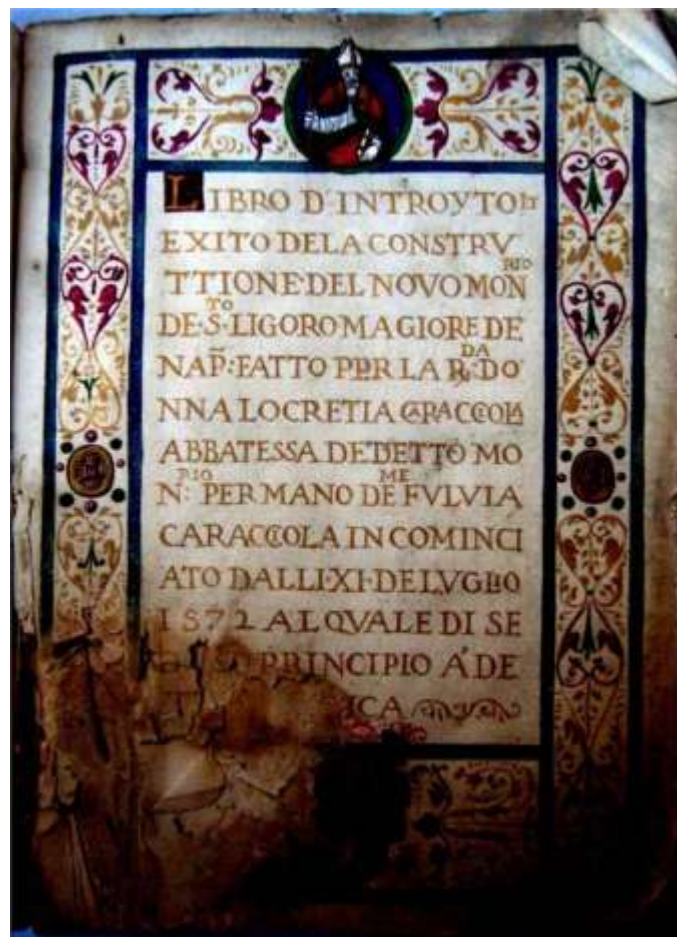 LIBRO D'INTROYTO ET
EXITO DELA CONSTRV
TTIONE·DEL NOVO MON RIO
DE·S·TO LIGORO MAGIORE DE
NAP̄:FATTO PER LA R·DA DO
NNA LOCRETIA CARACCIOLA
ABBATESSA DE DETTO MO
N:RIO PER MANO DE ME FVLVIA
CARACCIOLA IN COMINCI
ATO DALLI·XI·DE LVGLIO
1572 AL QVALE DI SE
PRINCIPIO A' DE
ICA